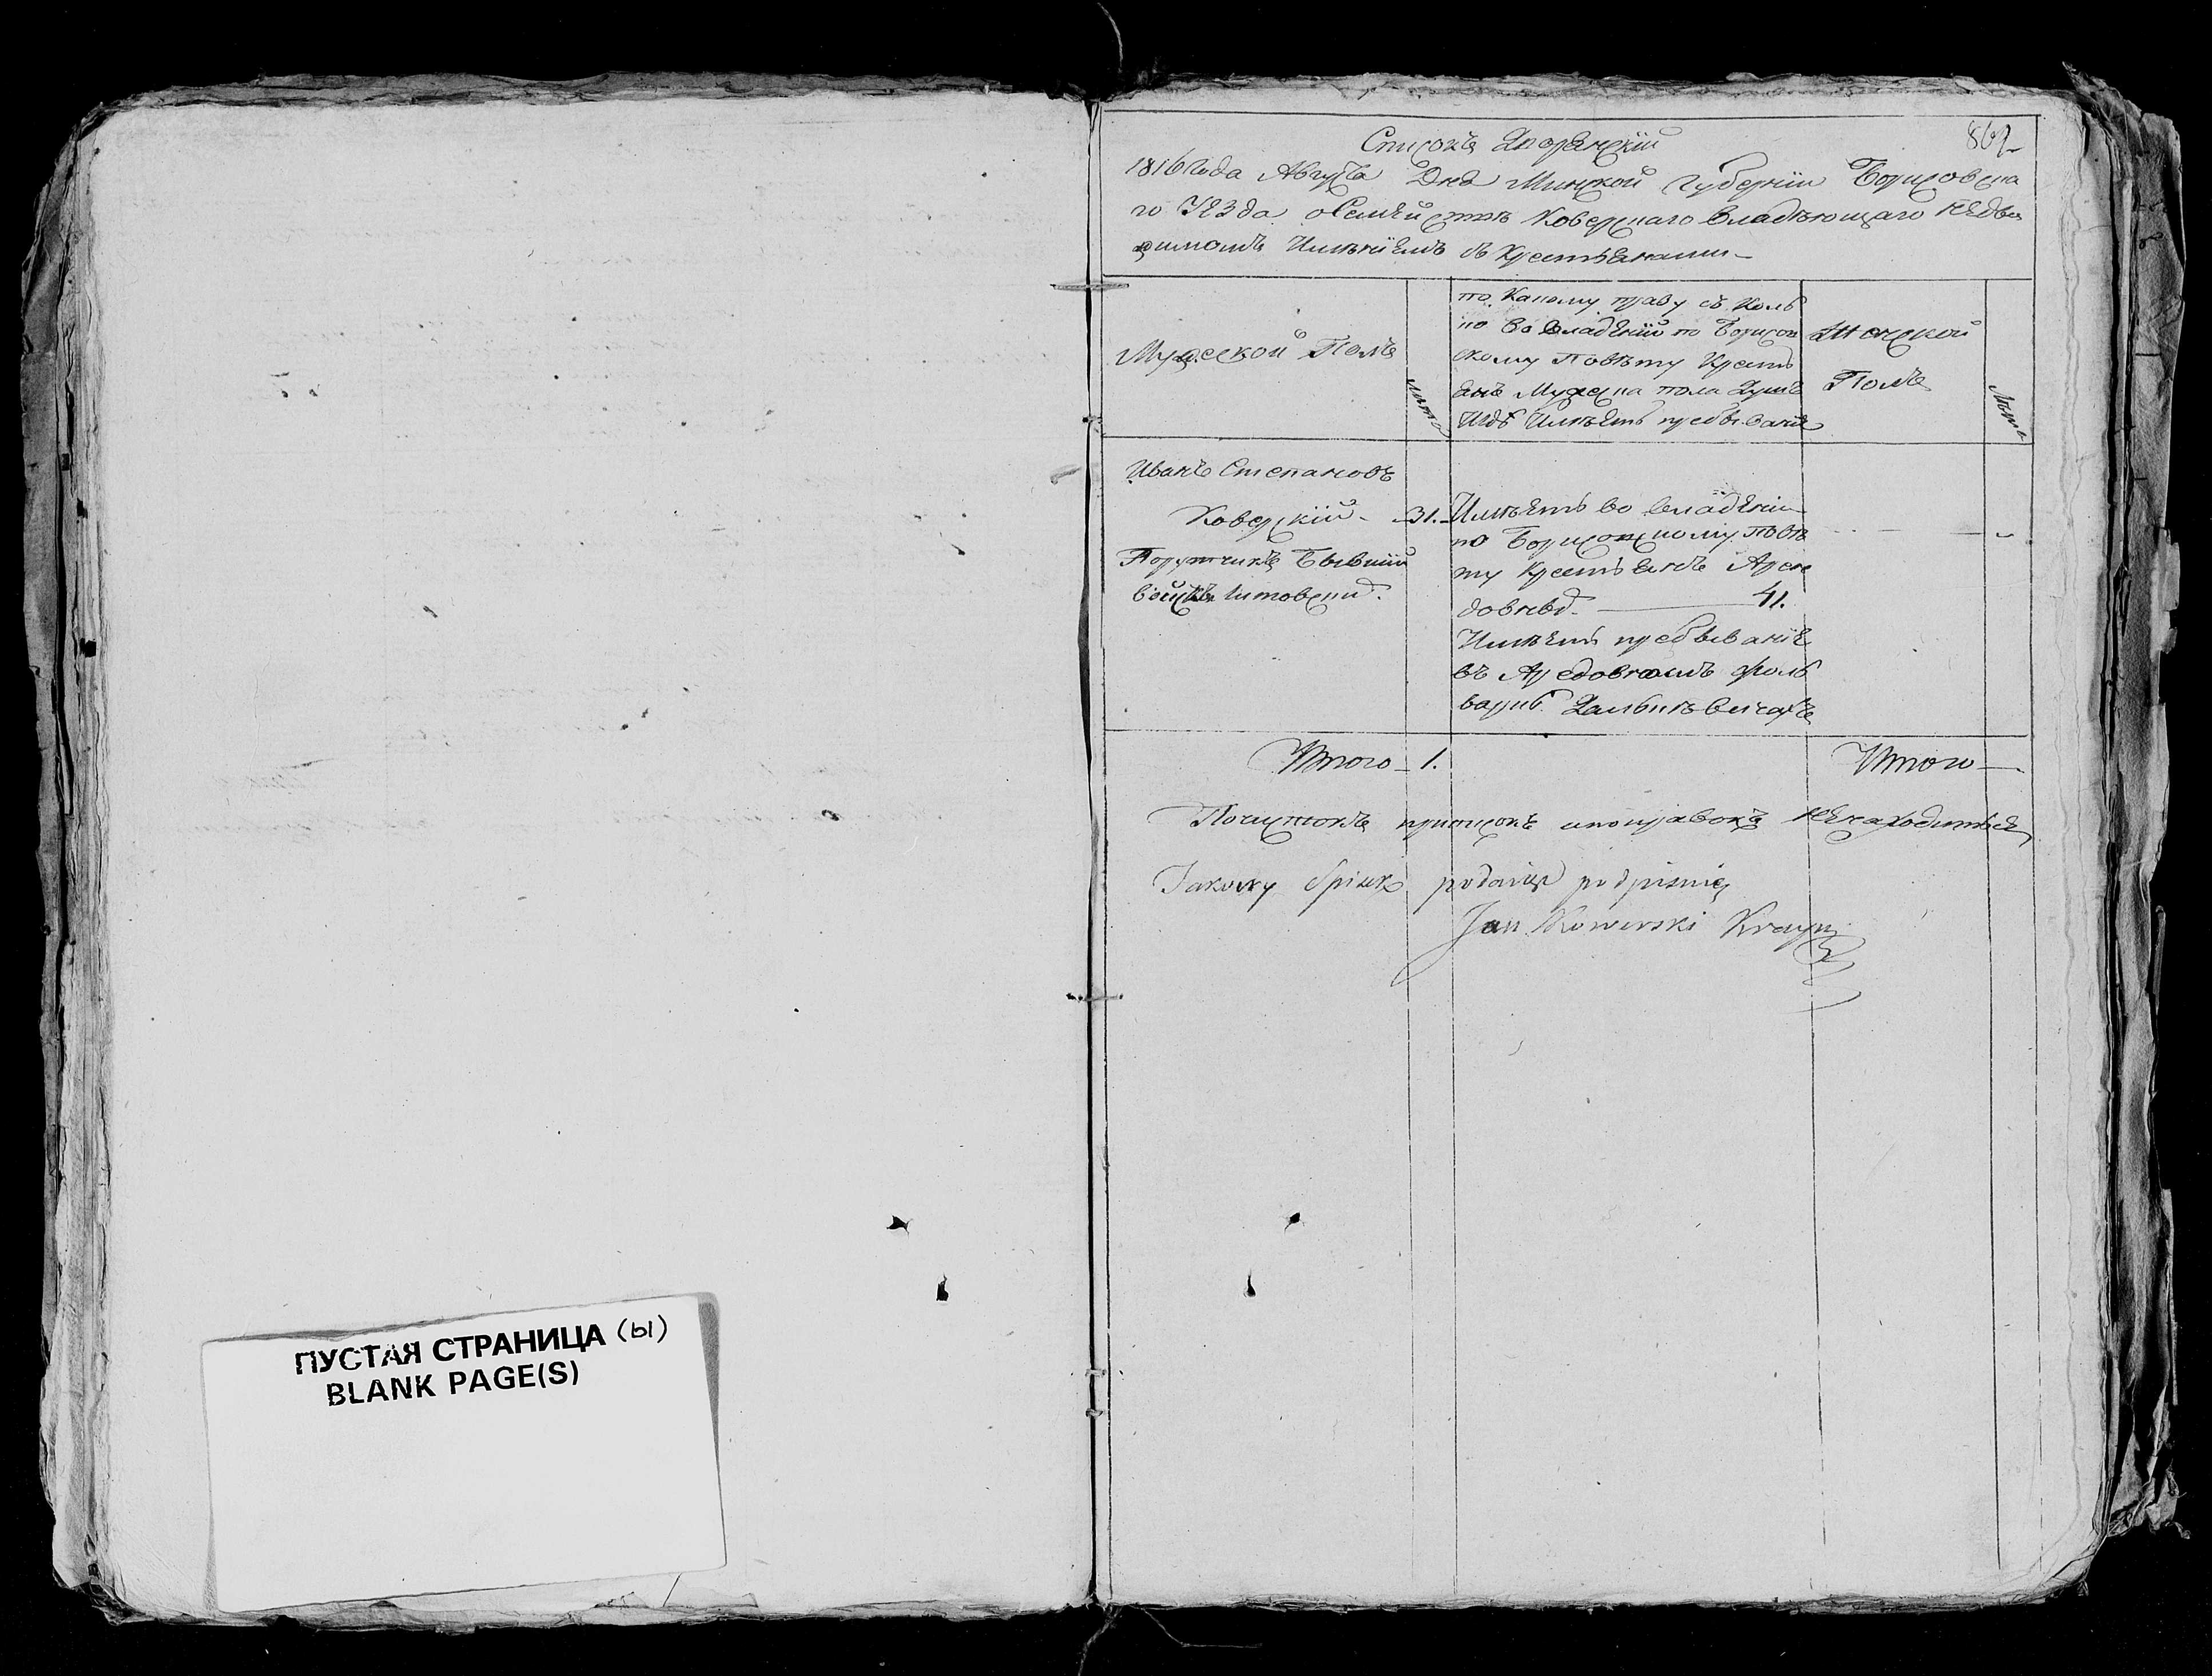 ПУСТАЯ СТРАНИЦА (ы)
BLANK PAGE(S)
Списокъ Дворянскій
1816 года Августа Дня Минской Губерніи Борисовска
го Уезда о Семействѣ Коверскаго Владѣющаго недви
жимомъ Имѣніемъ съ Крестьянами
Мужеской Полъ
Лѣта
по Какому праву съ Коль
ко во владеніи по Борисов
скому Повѣту Кресть
янъ Мужеска пола Душъ
Игдѣ Имѣетъ пребываніе
Женской
Полъ
Лѣта
Иванъ Степановъ
Коверскій - 31.
Порутчикъ Бывшій
войскъ Литовски
Имѣетъ во владеніи
по Борисовскому повѣ
ту Крестьянъ
41.
Имѣетъ пребываніе
въ фоль
варкѣ
Итого 1.
Итого
приписокъ ипоправокъ ненаходиться
Jakowy Spisek podaiąc podpisuię
Jan Kowerski